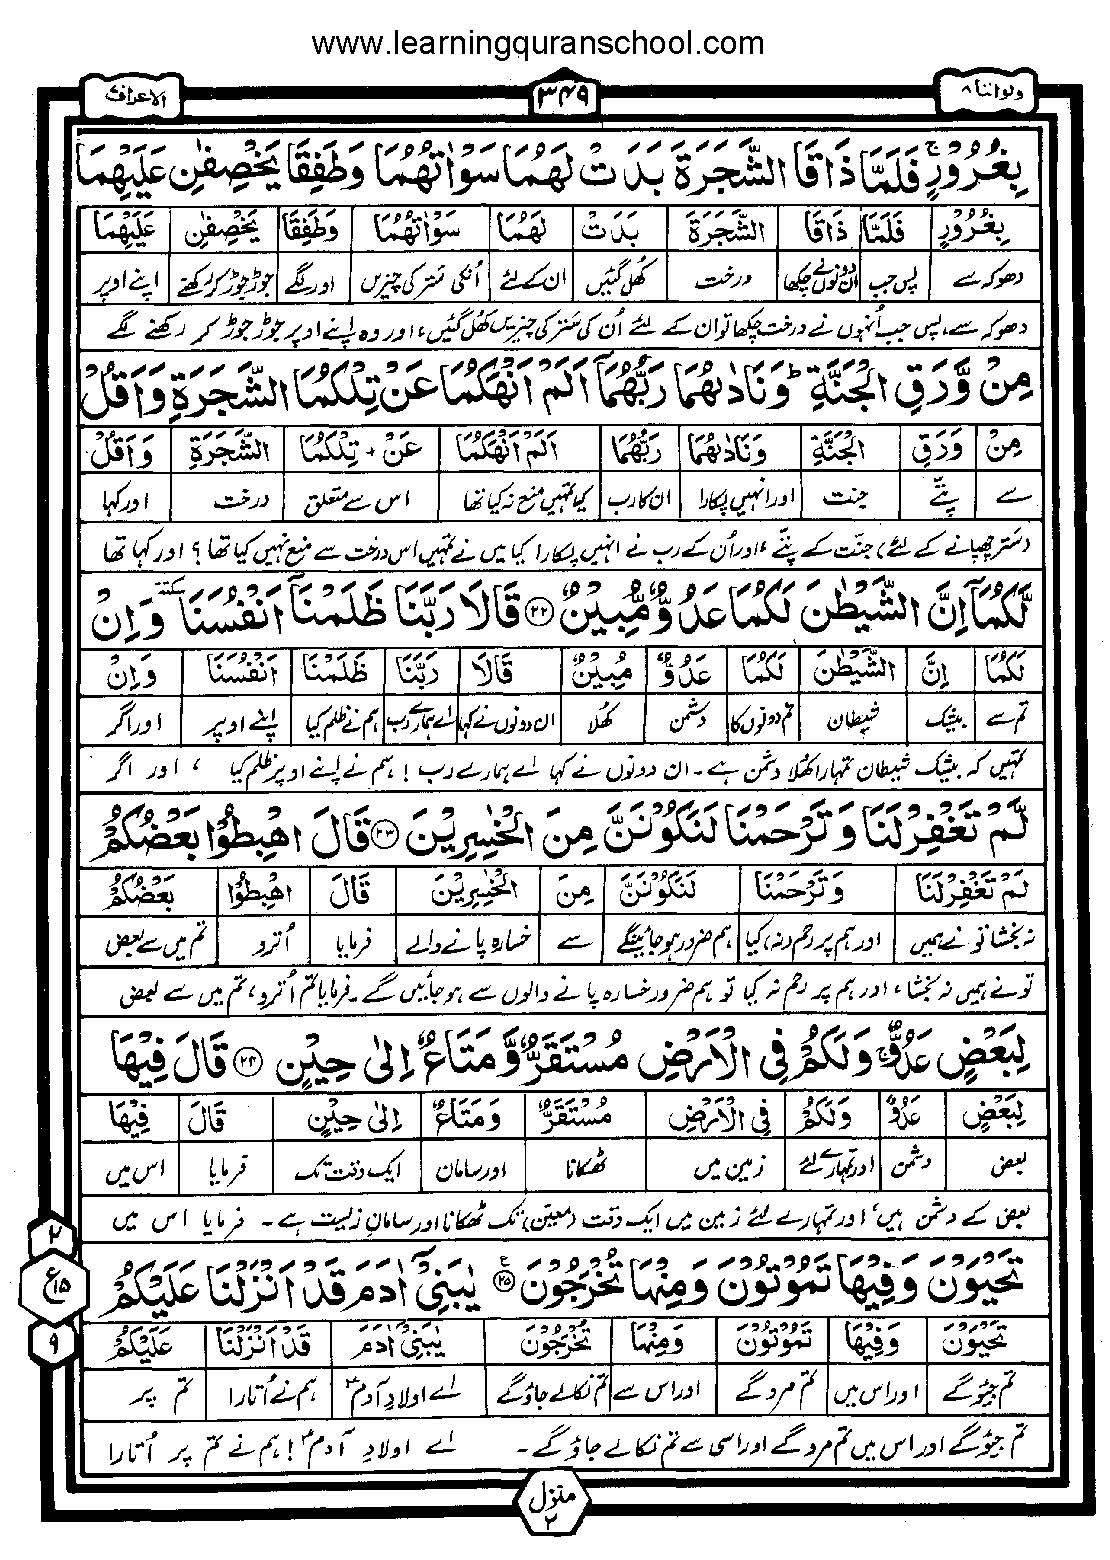 www.learningquranschool.com
ولواننا ٨
٣٤٩
الاعراف
بِغُرُوْرٍ ۚ فَلَمَّا ذَاقَا الشَّجَرَةَ بَدَتْ لَهُمَا سَوْاٰتُهُمَا وَطَفِقَا يَخْصِفٰنِ عَلَيْهِمَا
بِغُرُوْرٍ فَلَمَّا ذَاقَا الشَّجَرَةَ بَدَتْ لَهُمَا سَوْاٰتُهُمَا وَطَفِقَا يَخْصِفٰنِ عَلَيْهِمَا
دھوکہ سے پس جب ان دونوں نے چکھا درخت کھل گئیں ان کے لئے اُنکی ستر کی چیزیں اور لگے جوڑ جوڑ کر رکھنے اپنے اوپر
دھوکہ سے، پس جب اُنہوں نے درخت چکھا تو ان کے لئے اُن کی ستر کی چیزیں کھل گئیں، اور وہ اپنے اوپر جوڑ جوڑ کر رکھنے لگے
مِنْ وَّرَقِ الْجَنَّةِ ؕ وَنَادٰىهُمَا رَبُّهُمَاۤ اَلَمْ اَنْهَكُمَا عَنْ تِلْكُمَا الشَّجَرَةِ وَاَقُلْ
مِنْ وَرَقِ الْجَنَّةِ وَنَادٰىهُمَا رَبُّهُمَا اَلَمْ اَنْهَكُمَا عَنْ + تِلْكُمَا الشَّجَرَةِ وَاَقُلْ
سے پتّے جنت اور انہیں پکارا ان کا رب کیا تمہیں منع نہ کیا تھا اس سے متعلق درخت اور کہا
(ستر چھپانے کے لئے) جنّت کے پتّے، اور اُن کے رب نے انہیں پکارا کیا میں نے تمہیں اس درخت سے منع نہیں کیا تھا؟ اور کہا تھا
لَّكُمَاۤ اِنَّ الشَّيْطٰنَ لَكُمَا عَدُوٌّ مُّبِيْنٌ ﴿۲۲﴾ قَالَا رَبَّنَا ظَلَمْنَاۤ اَنْفُسَنَا ٚ وَاِنْ
لَكُمَا اِنَّ الشَّيْطٰنَ لَكُمَا عَدُوٌّ مُبِيْنٌ قَالَا رَبَّنَا ظَلَمْنَا اَنْفُسَنَا وَاِنْ
تم سے بیشک شیطان تم دونوں کا دشمن کُھلا ان دونوں نے کہا اے ہمارے رب ہم نے ظلم کیا اپنے اوپر اور اگر
تمہیں کہ بیشک شیطان تمہارا کھلا دشمن ہے۔ ان دونوں نے کہا اے ہمارے رب! ہم نے اپنے اوپر ظلم کیا، اور اگر
لَّمْ تَغْفِرْ لَنَا وَتَرْحَمْنَا لَنَكُوْنَنَّ مِنَ الْخٰسِرِيْنَ ﴿۲۳﴾ قَالَ اهْبِطُوْا بَعْضُكُمْ
لَمْ تَغْفِرْ لَنَا وَتَرْحَمْنَا لَنَكُوْنَنَّ مِنَ الْخٰسِرِيْنَ قَالَ اهْبِطُوْا بَعْضُكُمْ
نہ بخشا تو نے ہمیں اور ہم پر رحم (نہ) کیا ہم ضرور ہو جائینگے سے خسارہ پانے والے فرمایا اُترو تم میں سے بعض
تو نے ہمیں نہ بخشا، اور ہم پر رحم نہ کیا تو ہم ضرور خسارہ پانے والوں سے ہو جائیں گے۔ فرمایا تم اُترو، تم میں سے بعض
لِبَعْضٍ عَدُوٌّ ۚ وَلَكُمْ فِى الْاَرْضِ مُسْتَقَرٌّ وَّمَتَاعٌ اِلٰى حِيْنٍ ﴿۲۴﴾ قَالَ فِيْهَا
لِبَعْضٍ عَدُوٌّ وَلَكُمْ فِى الْاَرْضِ مُسْتَقَرٌّ وَمَتَاعٌ اِلٰى حِيْنٍ قَالَ فِيْهَا
بعض دشمن اور تمہارے لئے زمین میں ٹھکانا اور سامان ایک وقت تک فرمایا اس میں
بعض کے دشمن ہیں، اور تمہارے لئے زمین میں ایک وقت (معین) تک ٹھکانا اور سامانِ زیست ہے۔ فرمایا اس میں
تَحْيَوْنَ وَفِيْهَا تَمُوْتُوْنَ وَمِنْهَا تُخْرَجُوْنَ ﴿۲۵﴾ ع يٰبَنِىْۤ اٰدَمَ قَدْ اَنْزَلْنَا عَلَيْكُمْ
تَحْيَوْنَ وَفِيْهَا تَمُوْتُوْنَ وَمِنْهَا تُخْرَجُوْنَ يٰبَنِىْۤ اٰدَمَ قَدْ اَنْزَلْنَا عَلَيْكُمْ
تم جیؤ گے اور اس میں تم مرو گے اور اس سے تم نکالے جاؤ گے اے اولادِ آدمؑ ہم نے اُتارا تم پر
تم جیؤ گے اور اس میں تم مرو گے اور اسی سے تم نکالے جاؤ گے۔ اے اولادِ آدمؑ! ہم نے تم پر اُتارا
٢
ع ١٥
٩
منزل ٢